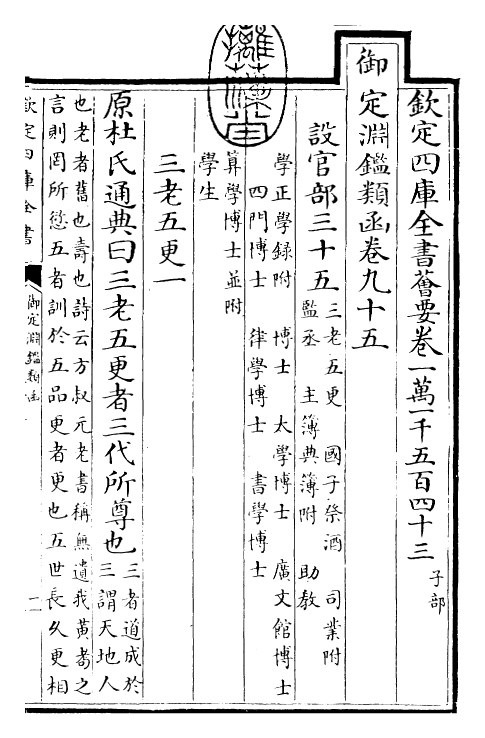 欽定四庫全書薈要卷一萬一千五百四十三
子部
御定淵鑑類函卷九十五
設官部三十五
三老五更 國子祭酒 司業附
監丞 主簿典簿附 助教
學正學錄附 博士 太學博士 廣文館博士
四門博士 律學博士 書學博士
算學博士並附
學生
三老五更一
原杜氏通典曰三老五更者三代所尊也
三者道成於
三謂天地人
也老者舊也壽也詩云方叔元老書稱無遺我黃耇之
言則罔所愆五者訓於五品更者更也五世長久更相
欽定四庫全書
御定淵鑑類函
一